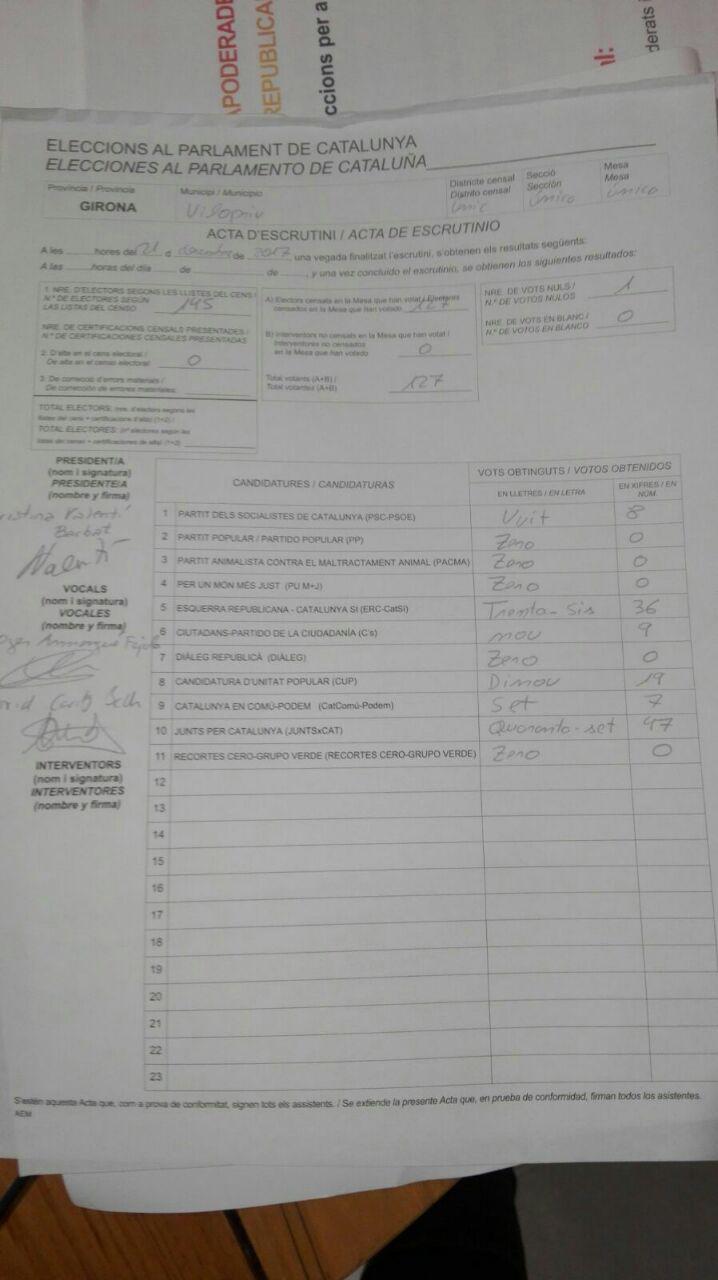 APODERADE
REPUBLICA
ccions per a
al:
derats i
ELECCIONS AL PARLAMENT DE CATALUNYA
ELECCIONES AL PARLAMENTO DE CATALUÑA
Província / Provincia
GIRONA
Municipi / Municipio
Vilopriu
Districte censal
Distrito censal
Únic
Secció
Sección
Única
Mesa
Mesa
Única
ACTA D'ESCRUTINI / ACTA DE ESCRUTINIO
A les hores del 21 d desembre de 2017 una vegada finalitzat l'escrutini, s'obtenen els resultats següents:
A las horas del día de de , y una vez concluido el escrutinio, se obtienen los siguientes resultados:
1. NRE. D'ELECTORS SEGONS LES LLISTES DEL CENS /
N.º DE ELECTORES SEGÚN
LAS LISTAS DEL CENSO 145
NRE. DE CERTIFICACIONS CENSALS PRESENTADES /
N.º DE CERTIFICACIONES CENSALES PRESENTADAS
2. D'alta en el cens electoral /
De alta en el censo electoral: 0
3. De correcció d'errors materials /
De corrección de errores materiales:
TOTAL ELECTORS: (nre. d'electors segons les
llistes del cens + certificacions d'alta) (1+2) /
TOTAL ELECTORES: (nº electores según las
listas del censo + certificaciones de alta) (1+2)
A) Electors censats en la Mesa que han votat / Electores
censados en la Mesa que han votado 127
B) Interventors no censats en la Mesa que han votat /
Interventores no censados
en la Mesa que han votado 0
Total votants (A+B) /
Total votantes (A+B) 127
NRE. DE VOTS NULS /
N.º DE VOTOS NULOS 1
NRE. DE VOTS EN BLANC /
N.º DE VOTOS EN BLANCO 0
PRESIDENT/A
(nom i signatura)
PRESIDENTE/A
(nombre y firma)
Valentí
Barbat
VOCALS
(nom i signatura)
VOCALES
(nombre y firma)
INTERVENTORS
(nom i signatura)
INTERVENTORES
(nombre y firma)
CANDIDATURES / CANDIDATURAS
VOTS OBTINGUTS / VOTOS OBTENIDOS
EN LLETRES / EN LETRA
EN XIFRES / EN NÚM.
1 PARTIT DELS SOCIALISTES DE CATALUNYA (PSC-PSOE) Vuit 8
2 PARTIT POPULAR / PARTIDO POPULAR (PP) Zero 0
3 PARTIT ANIMALISTA CONTRA EL MALTRACTAMENT ANIMAL (PACMA) Zero 0
4 PER UN MÓN MÉS JUST (PU M+J) Zero 0
5 ESQUERRA REPUBLICANA - CATALUNYA SÍ (ERC-CatSí) Trenta-sis 36
6 CIUTADANS-PARTIDO DE LA CIUDADANÍA (C's) nou 9
7 DIÀLEG REPUBLICÀ (DIÀLEG) Zero 0
8 CANDIDATURA D'UNITAT POPULAR (CUP) Dinou 19
9 CATALUNYA EN COMÚ-PODEM (CatComú-Podem) Set 7
10 JUNTS PER CATALUNYA (JUNTSxCAT) Quaranta-set 47
11 RECORTES CERO-GRUPO VERDE (RECORTES CERO-GRUPO VERDE) Zero 0
12
13
14
15
16
17
18
19
20
21
22
23
S'estén aquesta Acta que, com a prova de conformitat, signen tots els assistents. / Se extiende la presente Acta que, en prueba de conformidad, firman todos los asistentes.
AEM